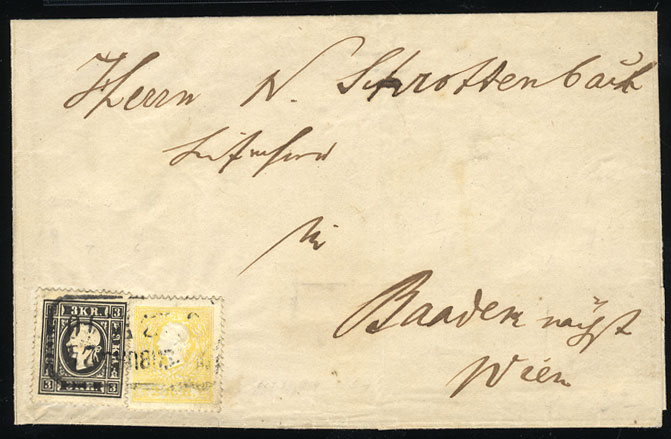 Herrn N. Schrottenbach
in
Baaden nächst
Wien
3 KR.
3
3